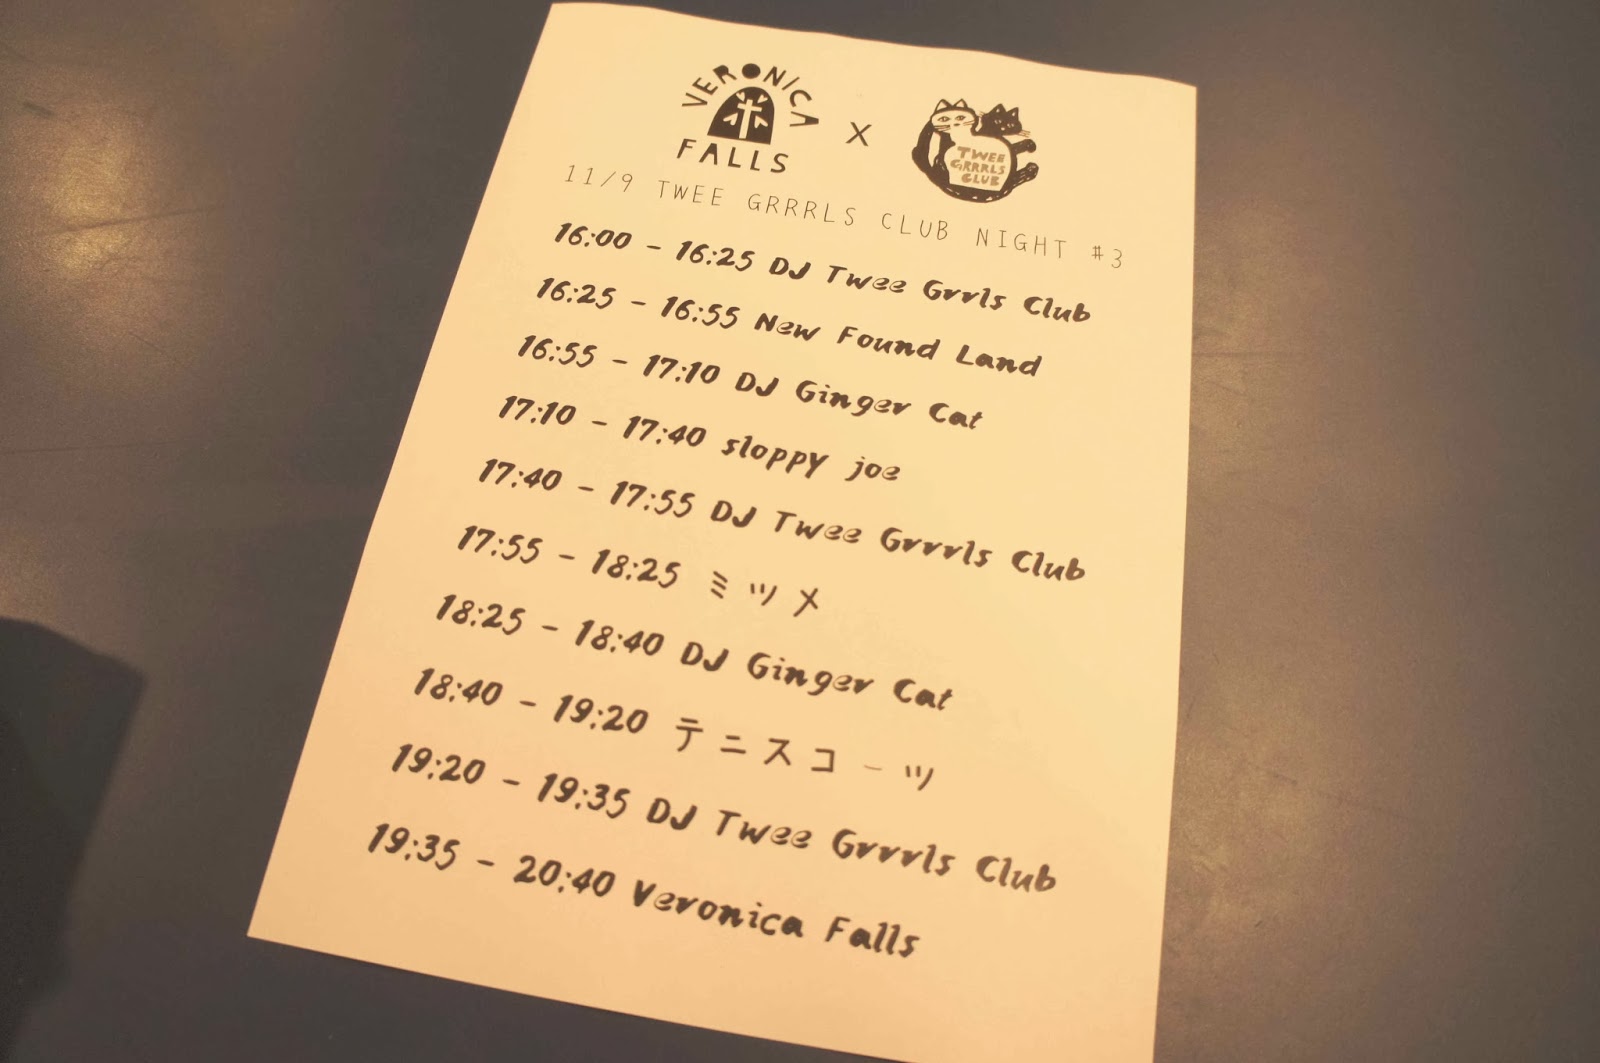 VERONICA
FALLS
X
TWEE
GRRRLS
CLUB
11/9 TWEE GRRRLS CLUB NIGHT #3
16:00 - 16:25 DJ Twee Grrls Club
16:25 - 16:55 New Found Land
16:55 - 17:10 DJ Ginger Cat
17:10 - 17:40 sloppy joe
17:40 - 17:55 DJ Twee Grrrls Club
17:55 - 18:25 ミツメ
18:25 - 18:40 DJ Ginger Cat
18:40 - 19:20 テニスコーツ
19:20 - 19:35 DJ Twee Grrrls Club
19:35 - 20:40 Veronica Falls